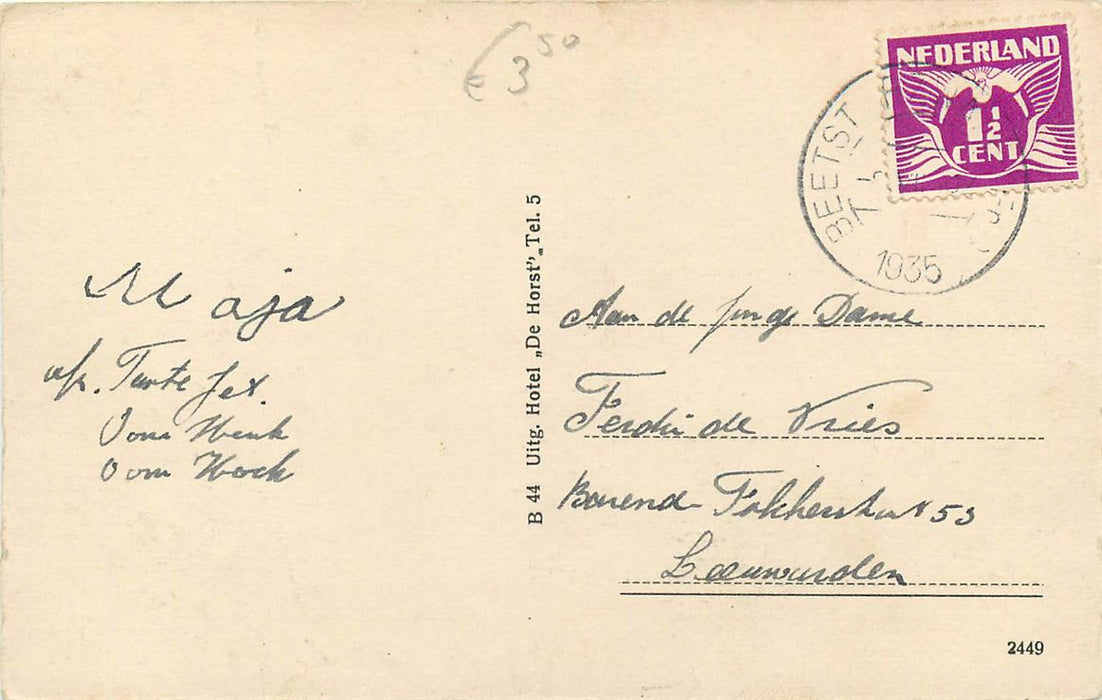 € 3 50
NEDERLAND
1 1/2
CENT
BEETST
1935
Maja
afz. Tante Jet.
Oom Henk
Oom Hock
B 44 Uitg. Hotel „De Horst”, Tel. 5
Aan de Jonge Dame
Ferdi de Vries
Barend Fokkerstraat 53
Leeuwarden
2449